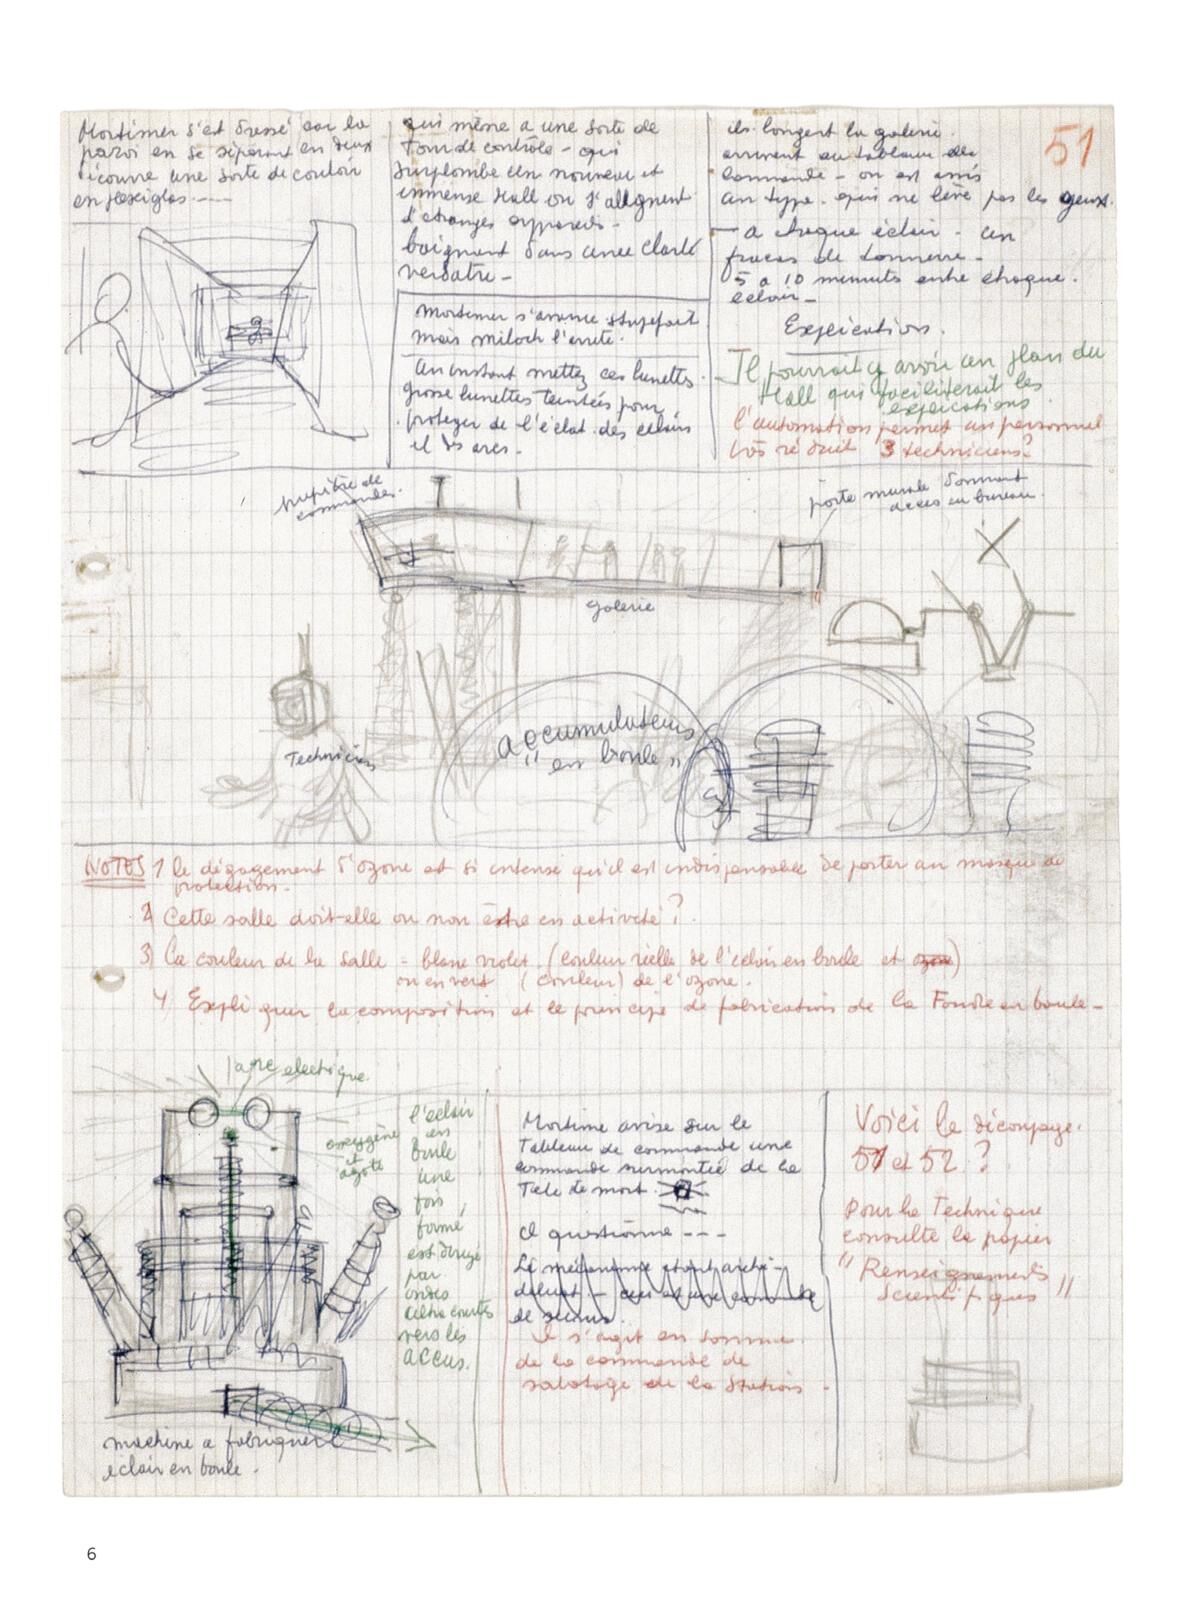 51
Mortimer s'est dressé car la
paroi en se séparant en deux
découvre une sorte de couloir
en plexiglas ----
qui mène a une sorte de
Tour de contrôle - qui
surplombe un nouveau et
immense Hall ou s'allignent
d'etranges appareils -
baignant dans une clarté
verdatre -
Mortimer s'avance stupefait
mais miloch l'arrete.
Un instant mettez ces lunettes.
grosse lunettes teintées pour
proteger de l'éclat des éclairs
et des arcs.
ils longent la galerie.
arrivent au tableau de
Commande - on est amis
au type. qui ne lève pas les yeux.
- a chaque éclair - un
fracas de tonnerre -
5 a 10 minuts entre chaque.
éclair -
Explication.
Il pourrait y avoir un plan du
Hall qui faciliterait les
explications.
l'automation permet un personnel
très réduit 3 techniciens?
pupitre de
commandes.
porte murale donnant
acces au bureau.
galerie
Technicien
accumulateurs
"en boule"
NOTES 1 le dégagement d'ozone est si intense qu'il est indispensable de porter un masque de
protection.
2 Cette salle doit-elle ou non être en activité?
3) La couleur de la salle - blanc violet. (couleur réelle de l'éclair en boule et ozone)
ou en vert (couleur) de l'ozone.
4 Expliquer la composition et le principe de fabrication de la Foudre en boule -
arc electrique
oxygène
et
azote
l'éclair
en
boule
une
fois
formé
est dirigé
par
ondes
ultra courtes
vers les
accus.
machine a fabriquer l'
éclair en boule.
Mortimer avise sur le
Tableau de commande une
commande surmontée de la
Tete de mort.
il questionne ---
Le mécanisme etant
de secours.
Il s'agit en somme
de la commande de
sabotage de la station -
Voici le découpage.
51 et 52 ?
Pour la Technique
consulte le papier
"Renseignements
Scientifiques"
6